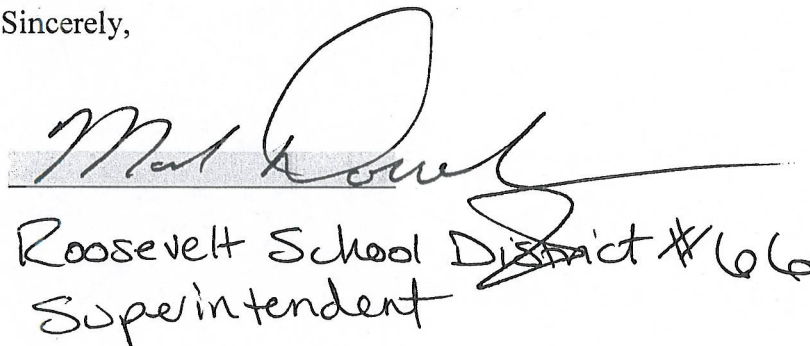 Sincerely,
Roosevelt School District #66
Superintendent